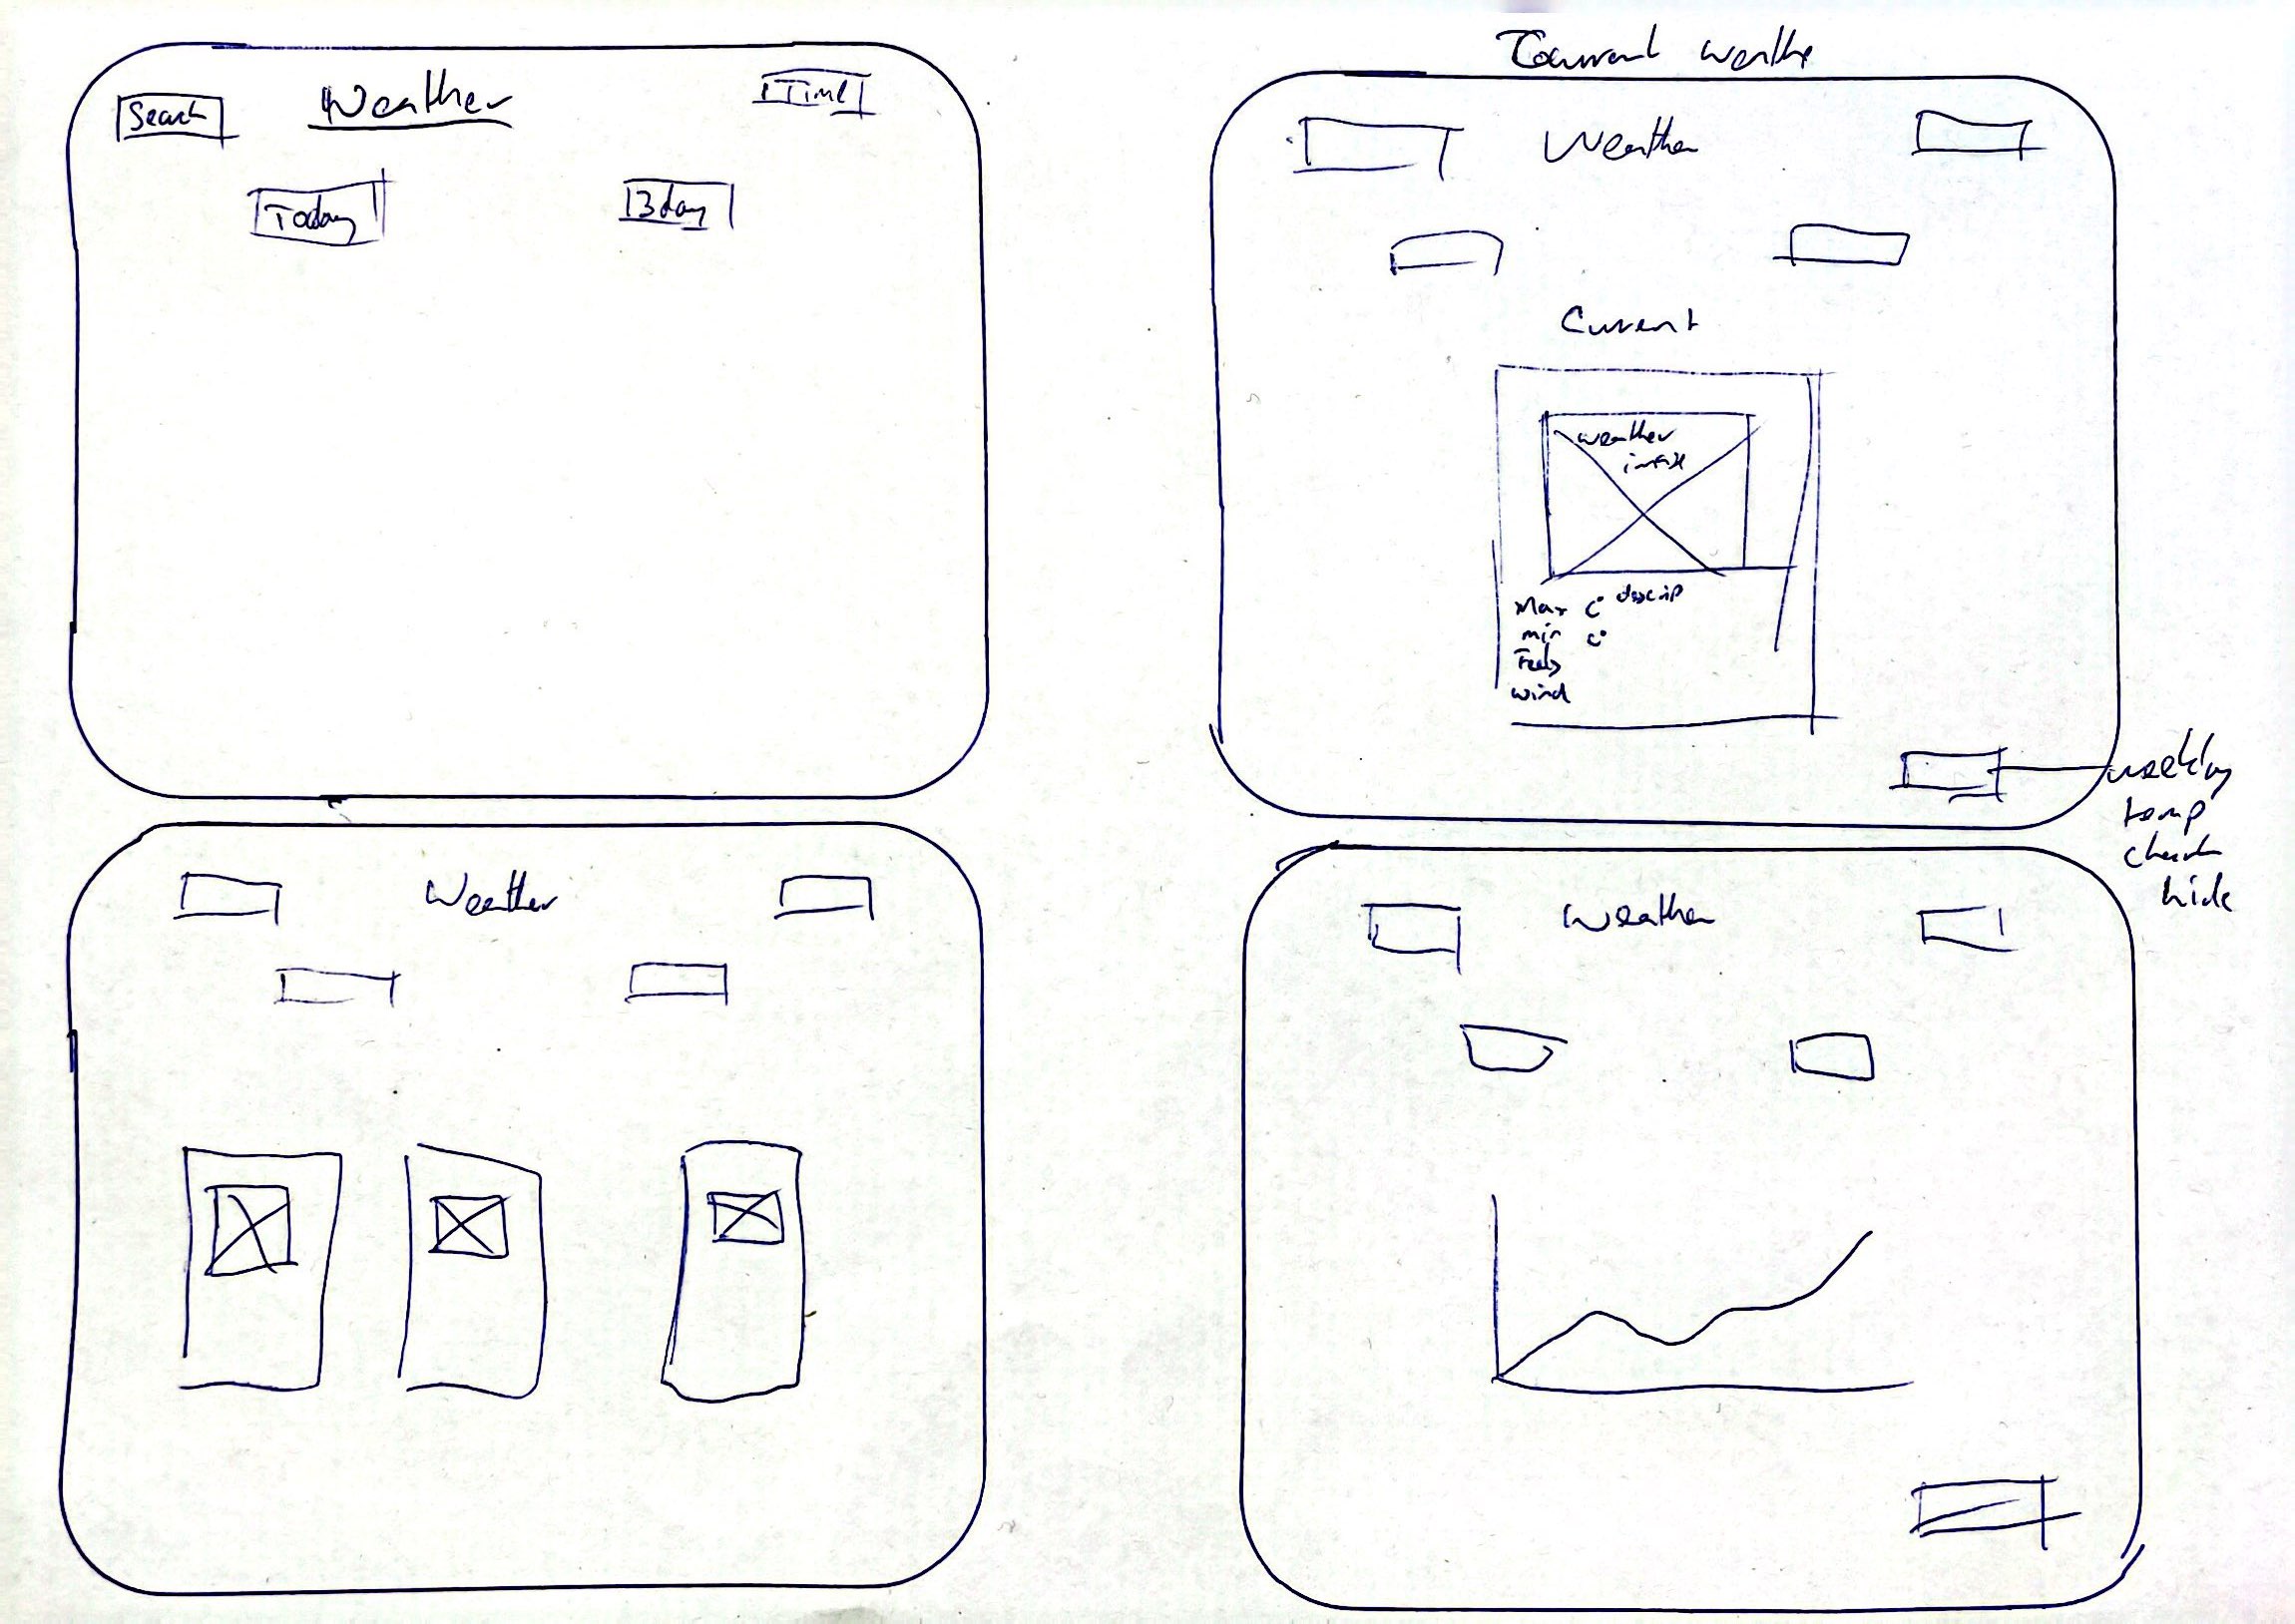 Search
Weather
Time
Today
3 day
Weather
Current
weather
Max C° descrip
min C°
Feels
wind
weekly
temp
chart
hide
Weather
Weather